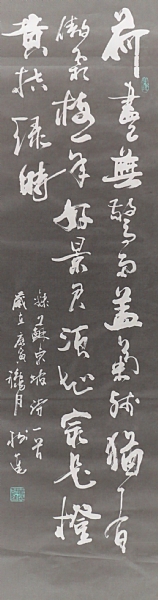 荷盡無擎雨蓋菊殘猶有
傲霜枝一年好景君須記最是橙
黄橘綠時
錄蘇東坡詩一首
歲在庚寅